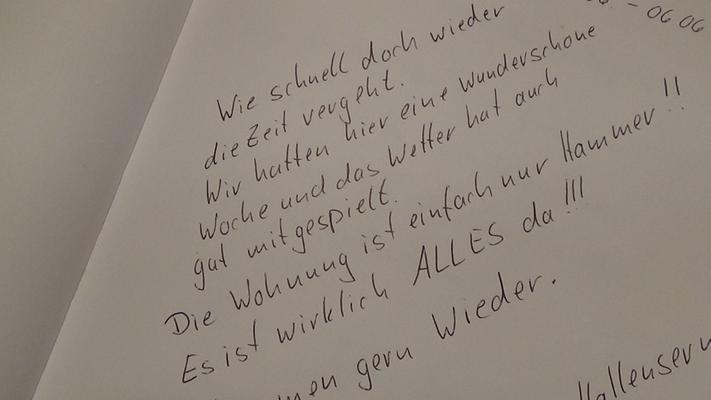 - 06 06
Wie schnell doch wieder
die Zeit vergeht.
Wir hatten hier eine wunderschöne
Woche und das Wetter hat auch
gut mitgespielt.
Die Wohnung ist einfach nur Hammer!!
Es ist wirklich ALLES da!!!
gern Wieder.